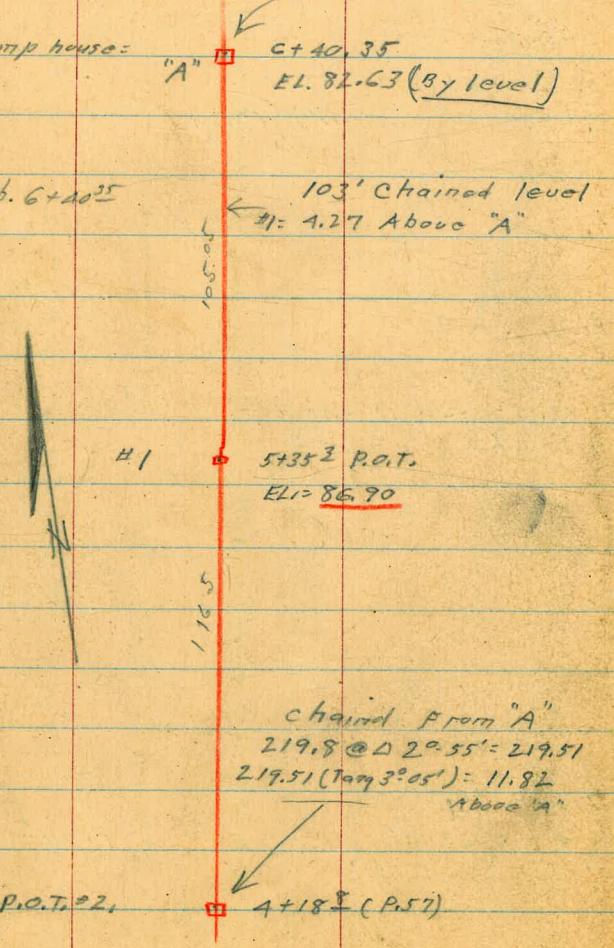 mp house=
"A"
6+40.35
EL. 82.63 (By level)
b. 6+40³⁵
103' Chained level
#1= 4.27 Above "A"
105.05
#1
5+35³ P.O.T.
EL.= 86.90
116.5
Chained From "A"
219.8 @ ∆ 2°-55' = 219.51
219.51 (Tang 3°-05') = 11.82
Above "A"
P.O.T. #2.
4+18⁸ (P.57)